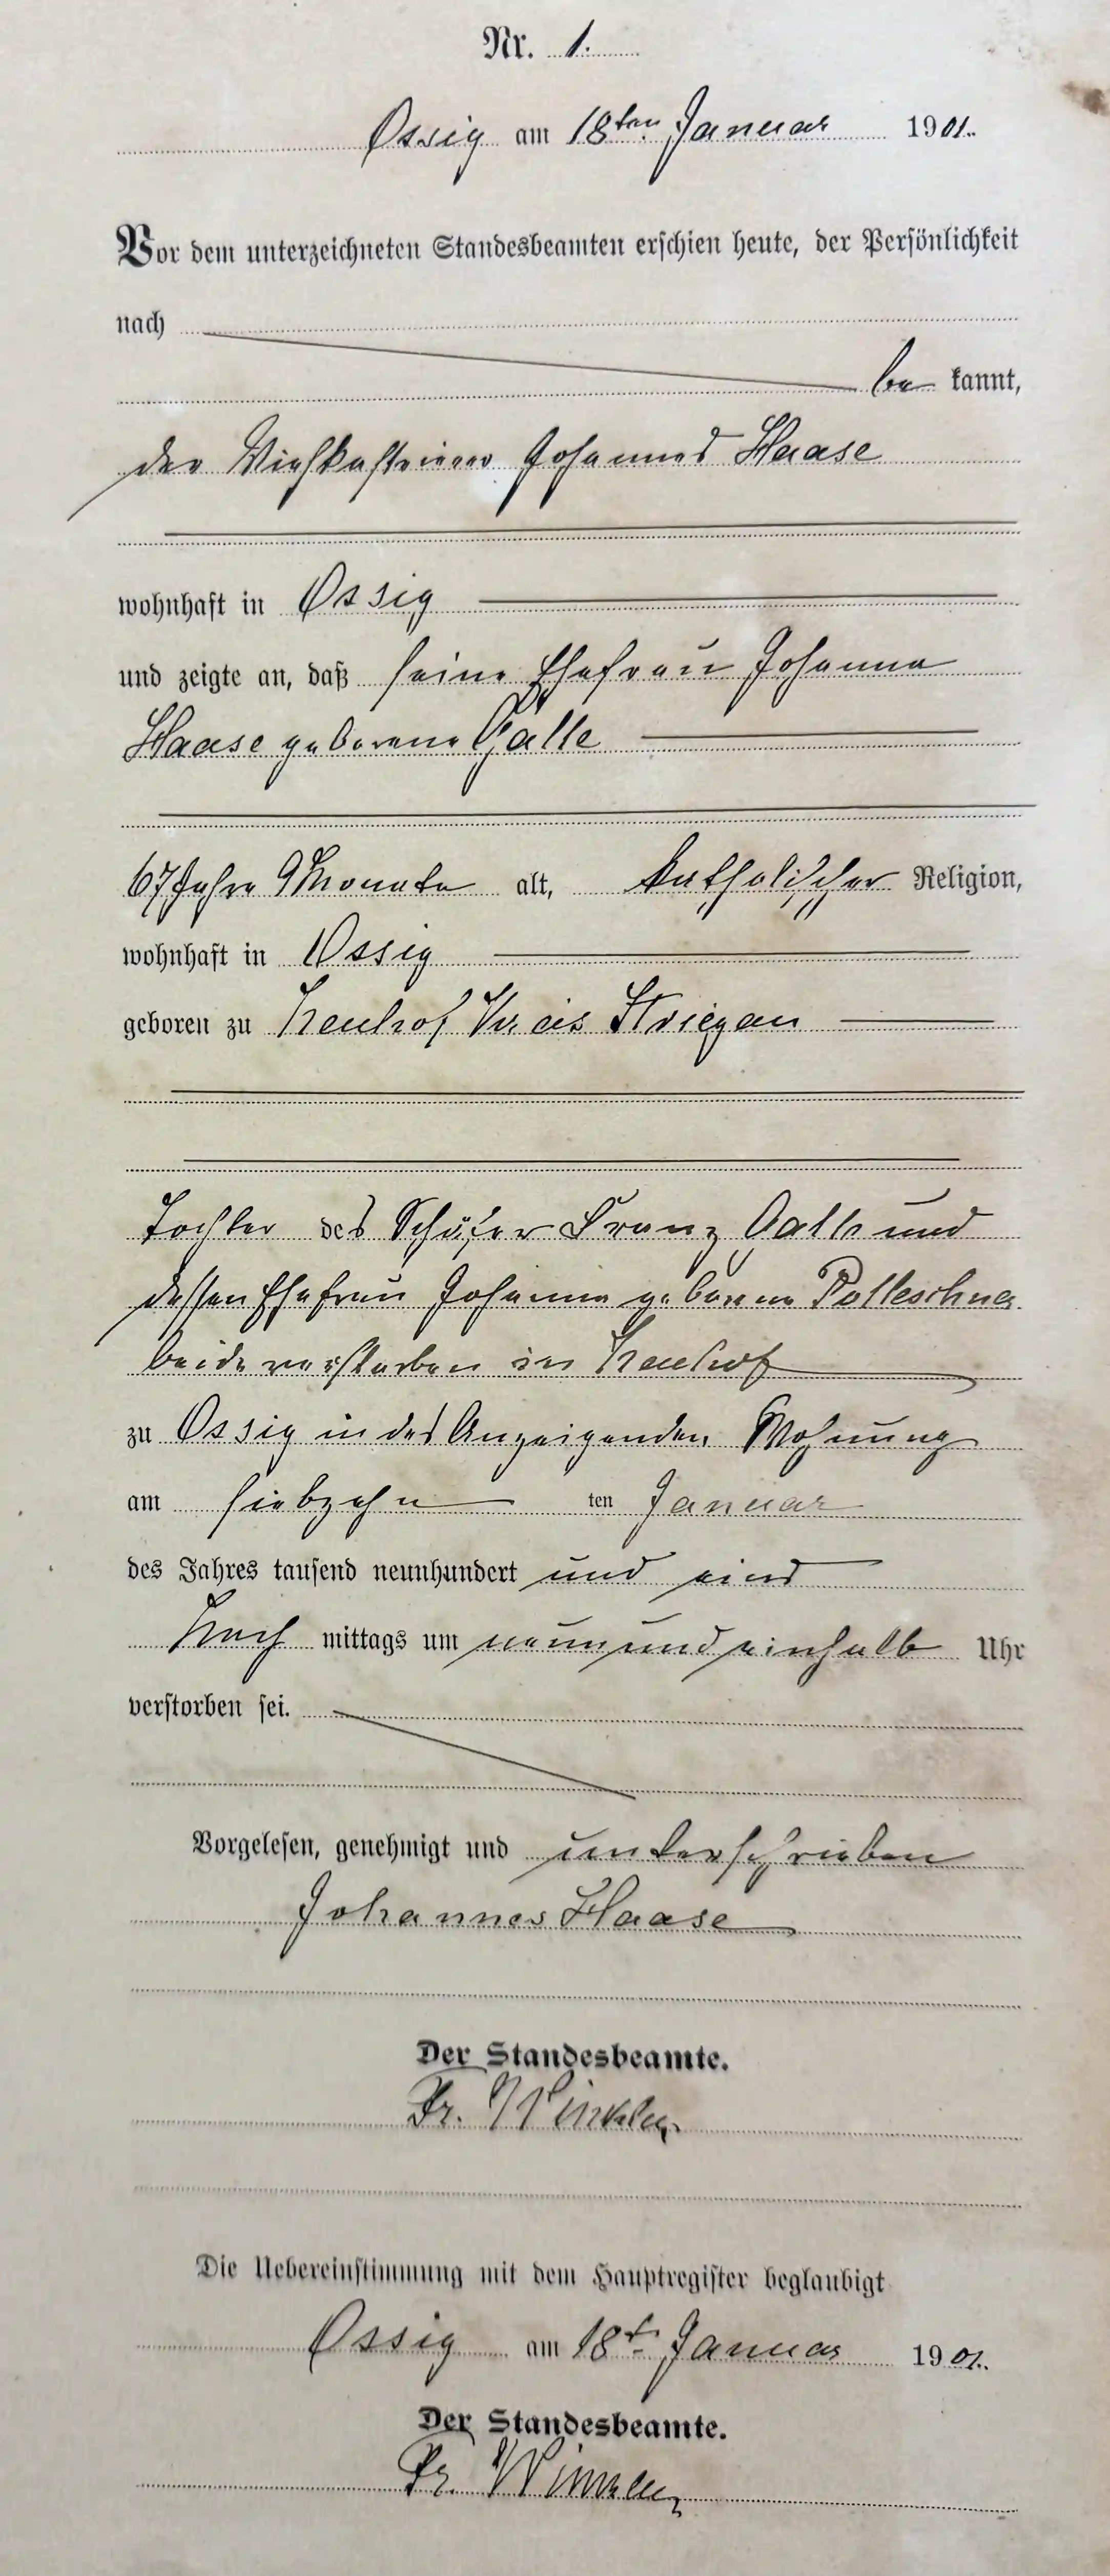 Nr. 1.
Ossig am 18ten Januar 1901.
Vor dem unterzeichneten Standesbeamten erschien heute, der Persönlichkeit
nach
be kannt,
der Viehkastrierer Johannes Haase
wohnhaft in Ossig
und zeigte an, daß seine Ehefrau Johanna
Haase geborene Galle
67 Jahre 9 Monate alt, katholischer Religion,
wohnhaft in Ossig
geboren zu Neuhof Kreis Striegau
Tochter des Schäfer Franz Galle und
dessen Ehefrau Johanna geborene Polleschner
beide verstorben in Neuhof
zu Ossig in des Anzeigenden Wohnung
am siebzehn ten Januar
des Jahres tausend neunhundert und eins
Nach mittags um neun und einhalb Uhr
verstorben sei.
Vorgelesen, genehmigt und unterschrieben
Johannes Haase
Der Standesbeamte.
Fr. Winkler
Die Uebereinstimmung mit dem Hauptregister beglaubigt
Ossig am 18t. Januar 1901.
Der Standesbeamte.
Fr. Winkler